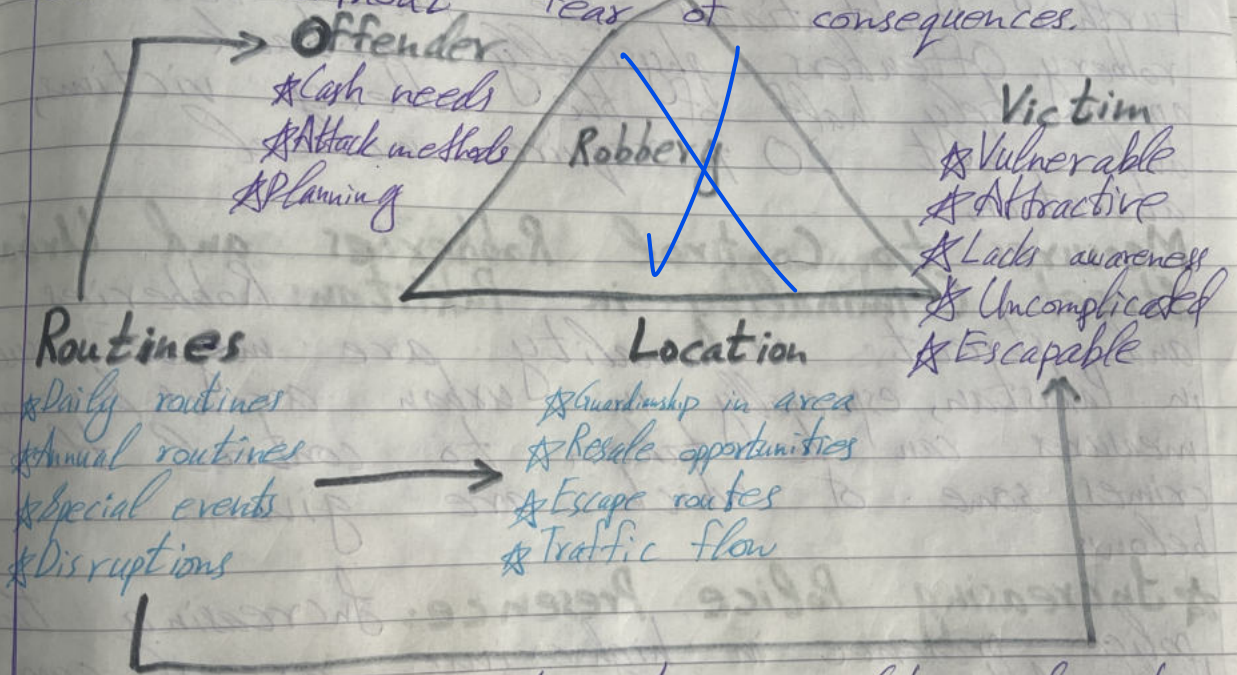 fear of consequences.
Offender
☆Cash needs
☆Attack methods
☆Planning
Robbery
Victim
☆Vulnerable
☆Attractive
☆Lacks awareness
☆Uncomplicated
☆Escapable
Routines
☆Daily routines
☆Annual routines
☆Special events
☆Disruptions
Location
☆Guardianship in area
☆Resale opportunities
☆Escape routes
☆Traffic flow